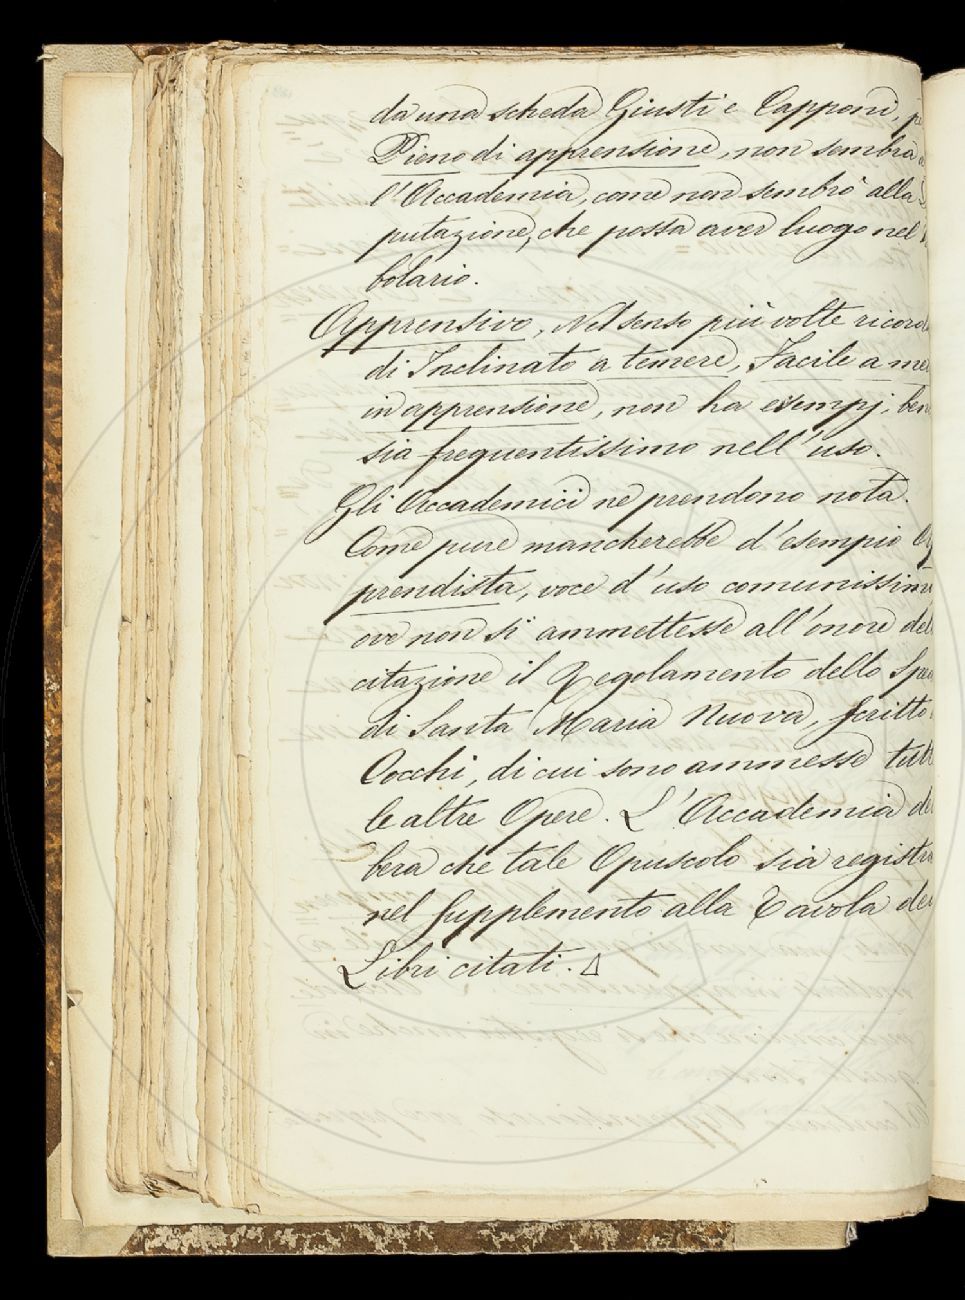 da una scheda Giusti e Capponi, p
Pieno di apprensione, non sembra a
l'Accademia, come non sembrò alla
putazione, che possa aver luogo nel
bolario.
Apprensivo, Nel senso più volte ricord
di Inclinato a temere, Facile a me
in apprensione, non ha esempj, ben
sia frequentissimo nell'uso.
Gli Accademici ne prendono nota.
Come pure mancherebbe d'esempio Ap
prendista, voce d'uso comunissim
ove non si ammettesse all'onore del
citazione il Regolamento dello Spe
di Santa Maria Nuova, scritto
Cocchi, di cui sono ammesse tutt
le altre Opere. L'Accademia de
bera che tale Opuscolo sia registra
nel Supplemento alla Tavola dei
Libri citati. Δ